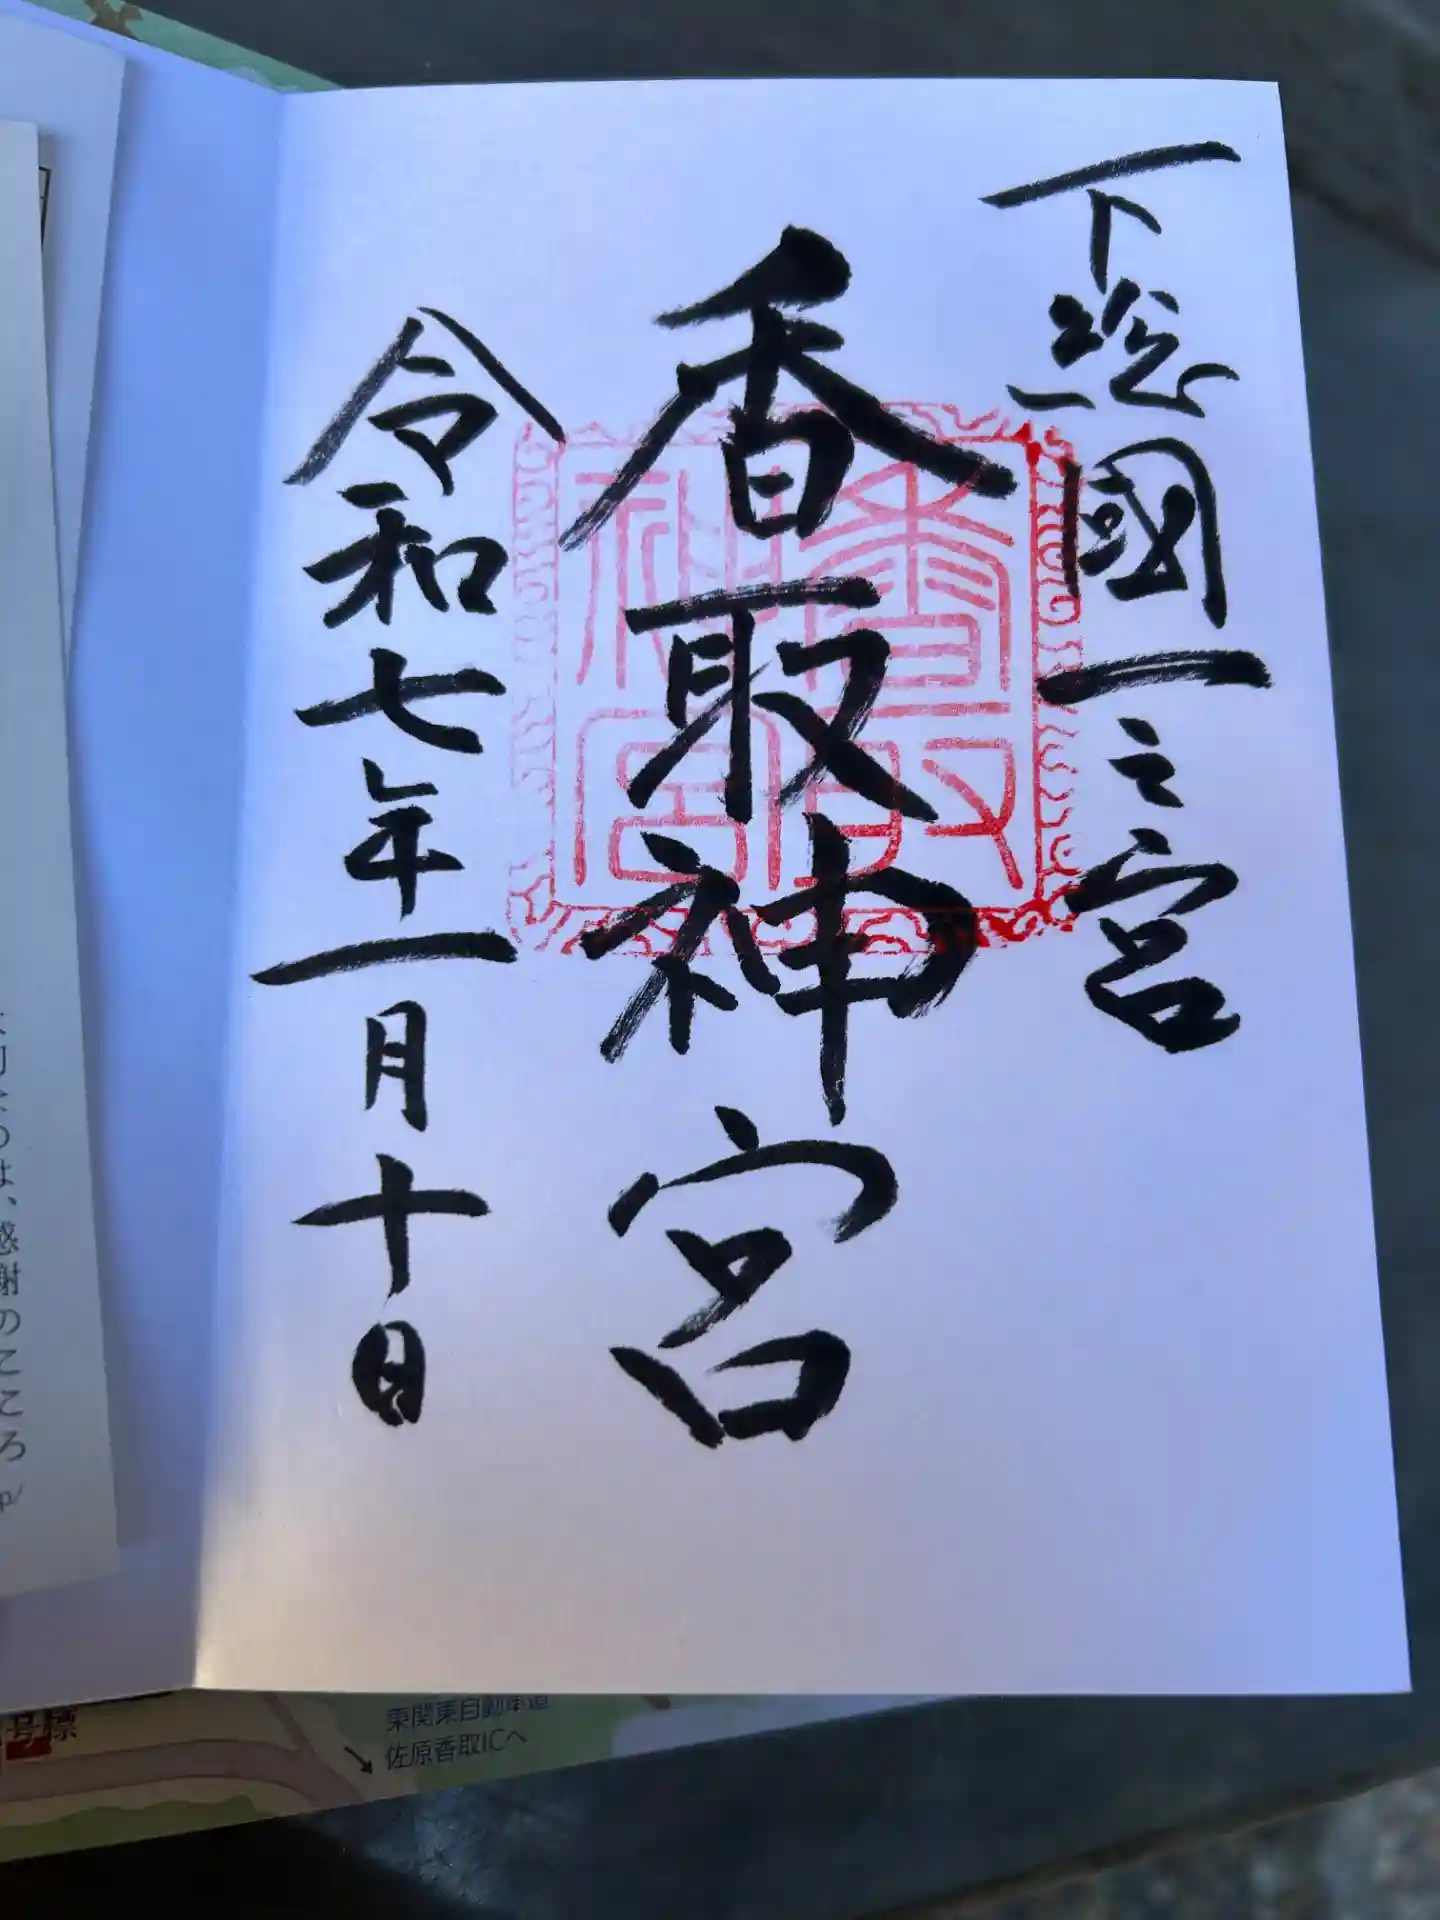 下総國一之宮
香取神宮
令和七年一月十日
香取神宮
は、感謝のこころ
p/
号標
東関東自動車道
佐原香取ICへ